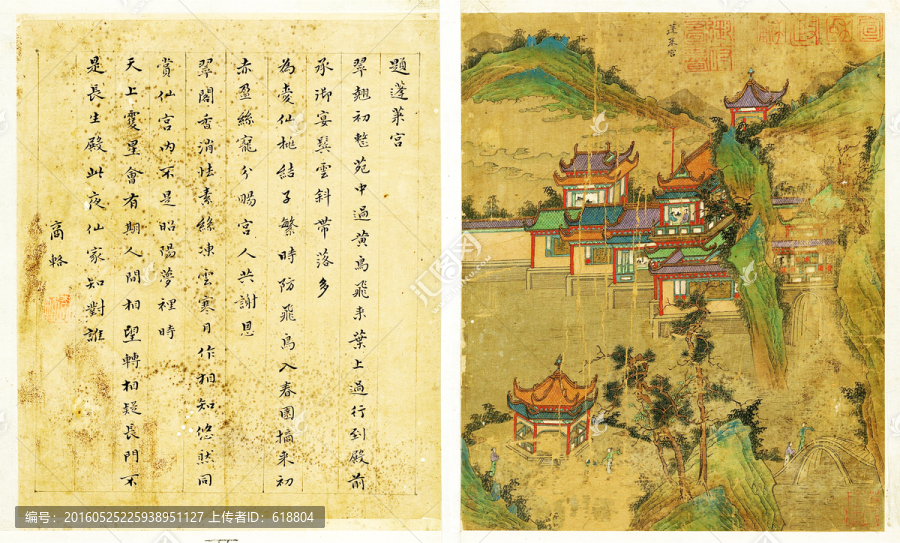 題蓬萊宮
翠翹初整苑中過黃鳥飛來葉上過行到殿前
承御宴鬂雲斜帶落多
為愛仙桃結子繁時防飛鳥入春園摘來初
赤盈絲寵分賜宮人共謝恩
翠閣香消怯素絲凍雲寒月作相知悠然同
賞仙宮內不是昭陽夢裡時
天上雙星會有期人間相望轉相疑長門不
是長生殿此夜仙家知對誰
商輅
蓬萊宮
編号：20160525225938951127 上传者ID：618804